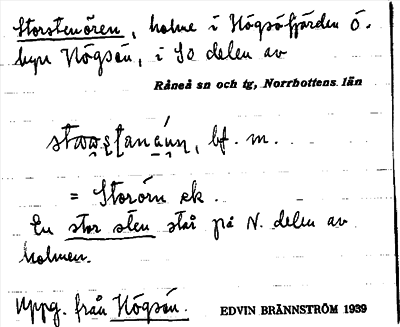 Storstenören, holme i Högsöfjärden ö.
byn Högsön, i So delen av
Råneå sn och tg, Norrbottens län
bf. m.
= Storörn ek.
En stor sten står på N. delen av
holmen.
Uppg. från Högsön.
EDVIN BRÄNNSTRÖM 1939